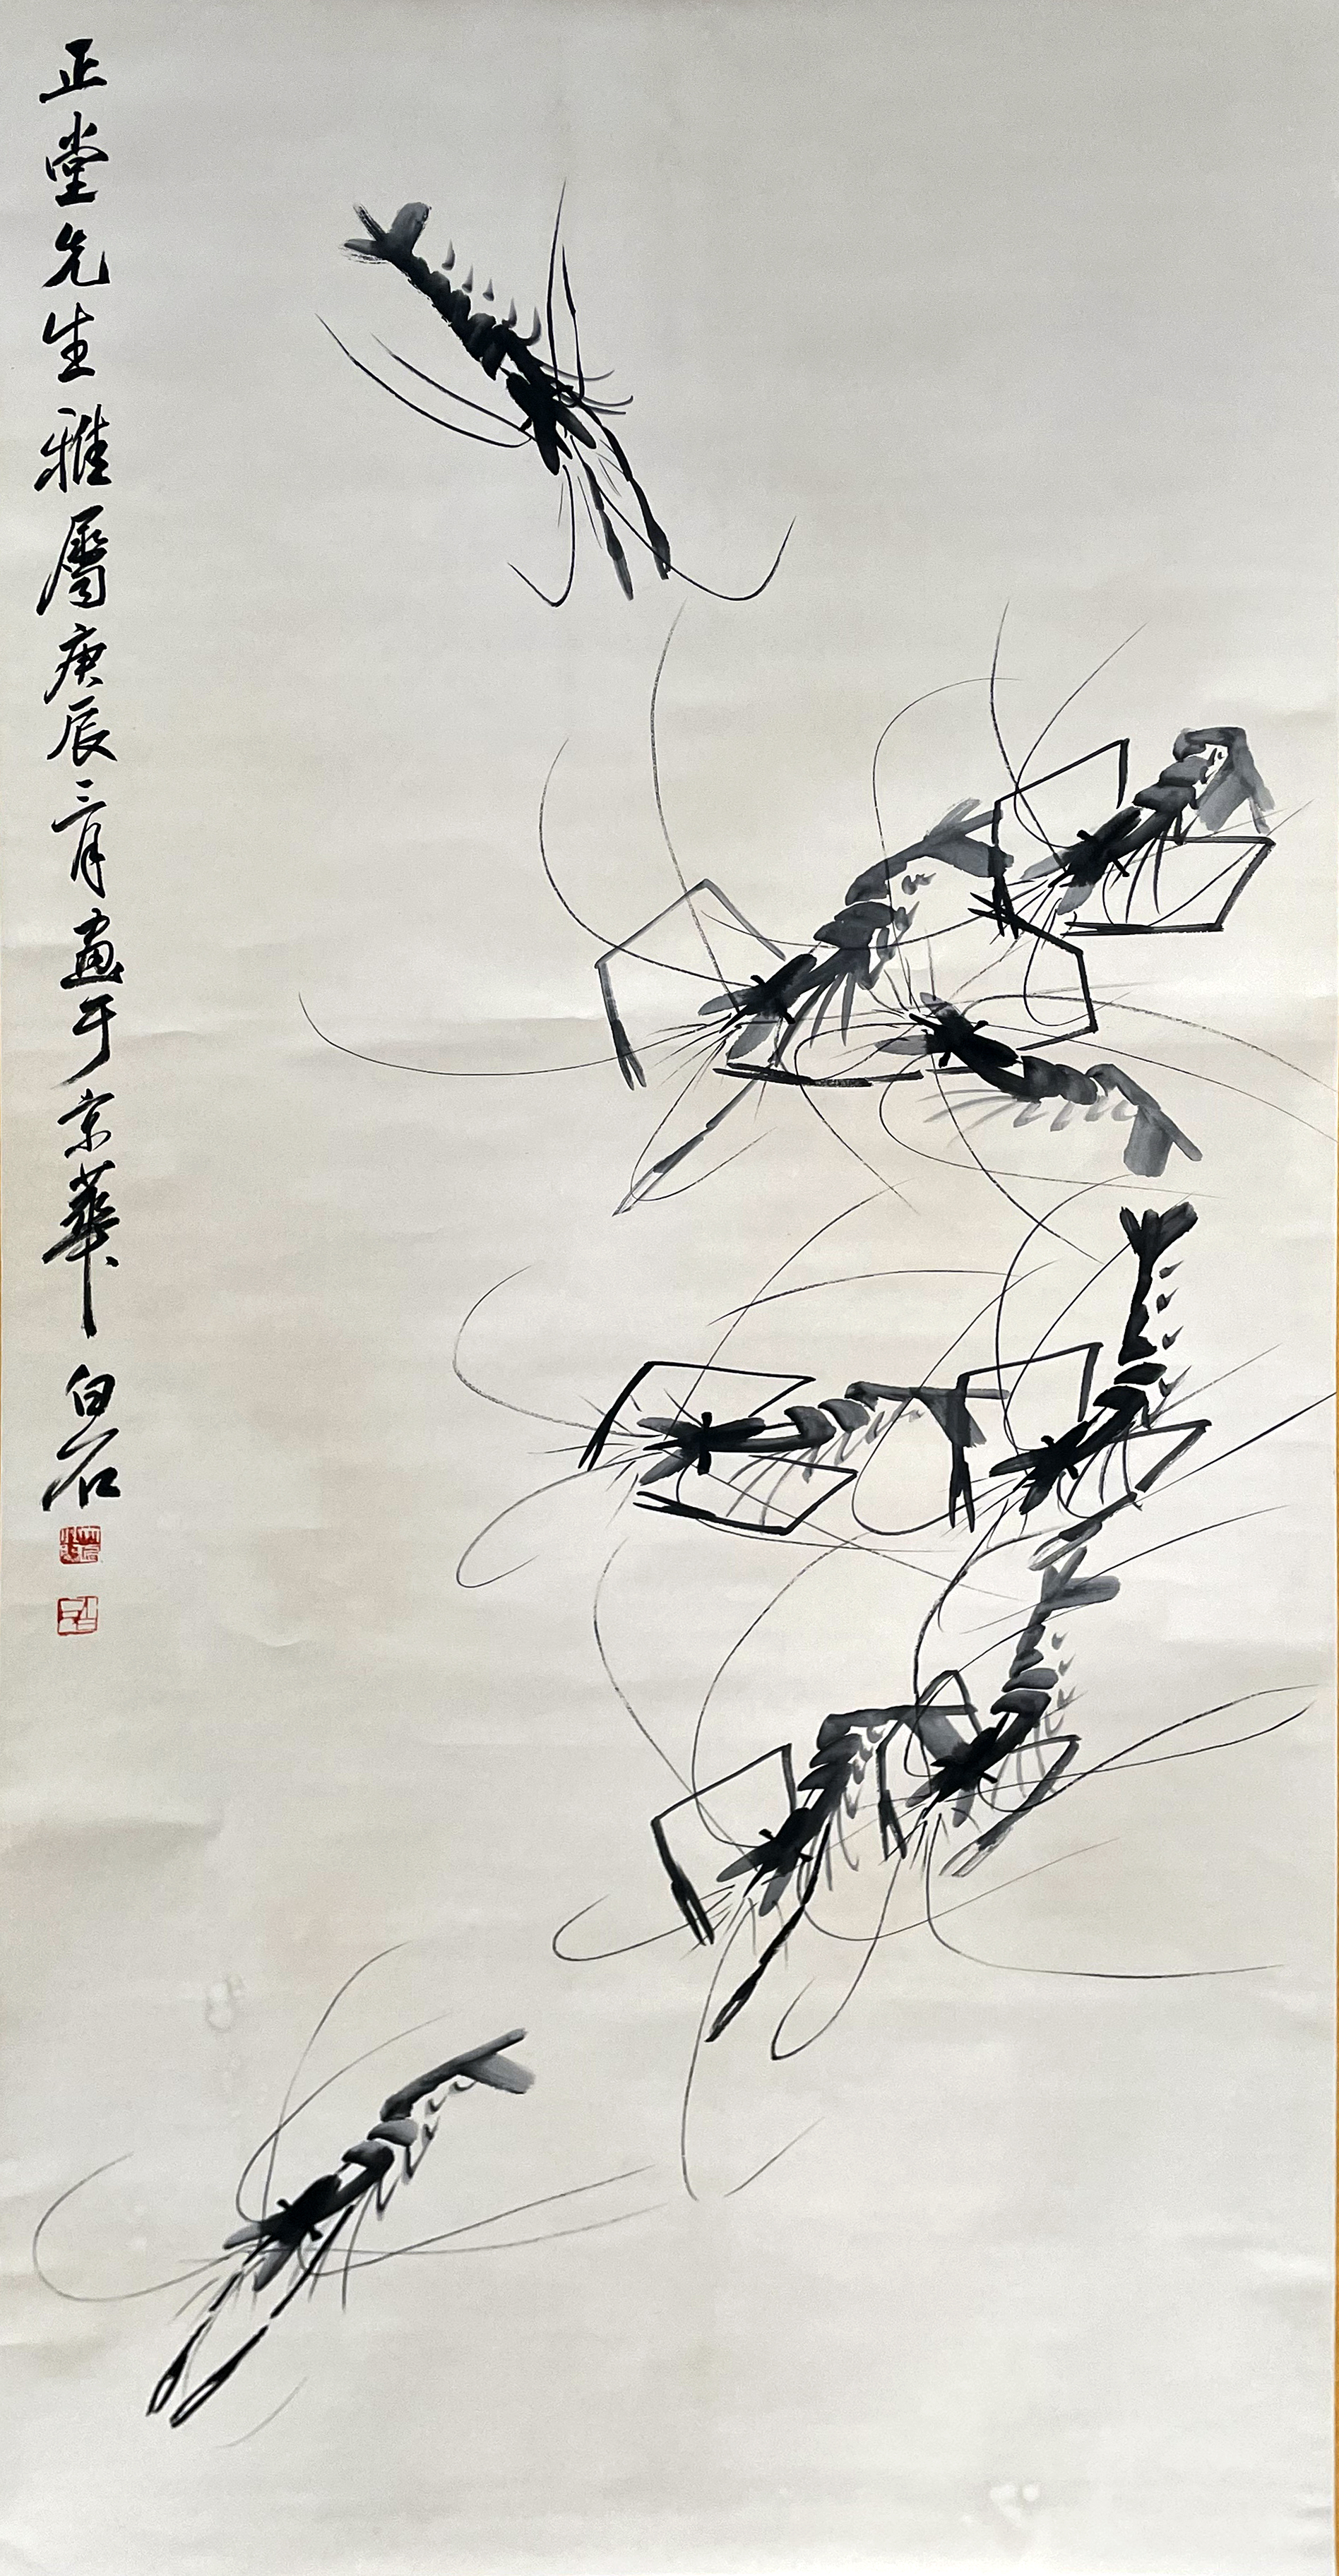 正堂先生雅屬庚辰三月畫于京華白石